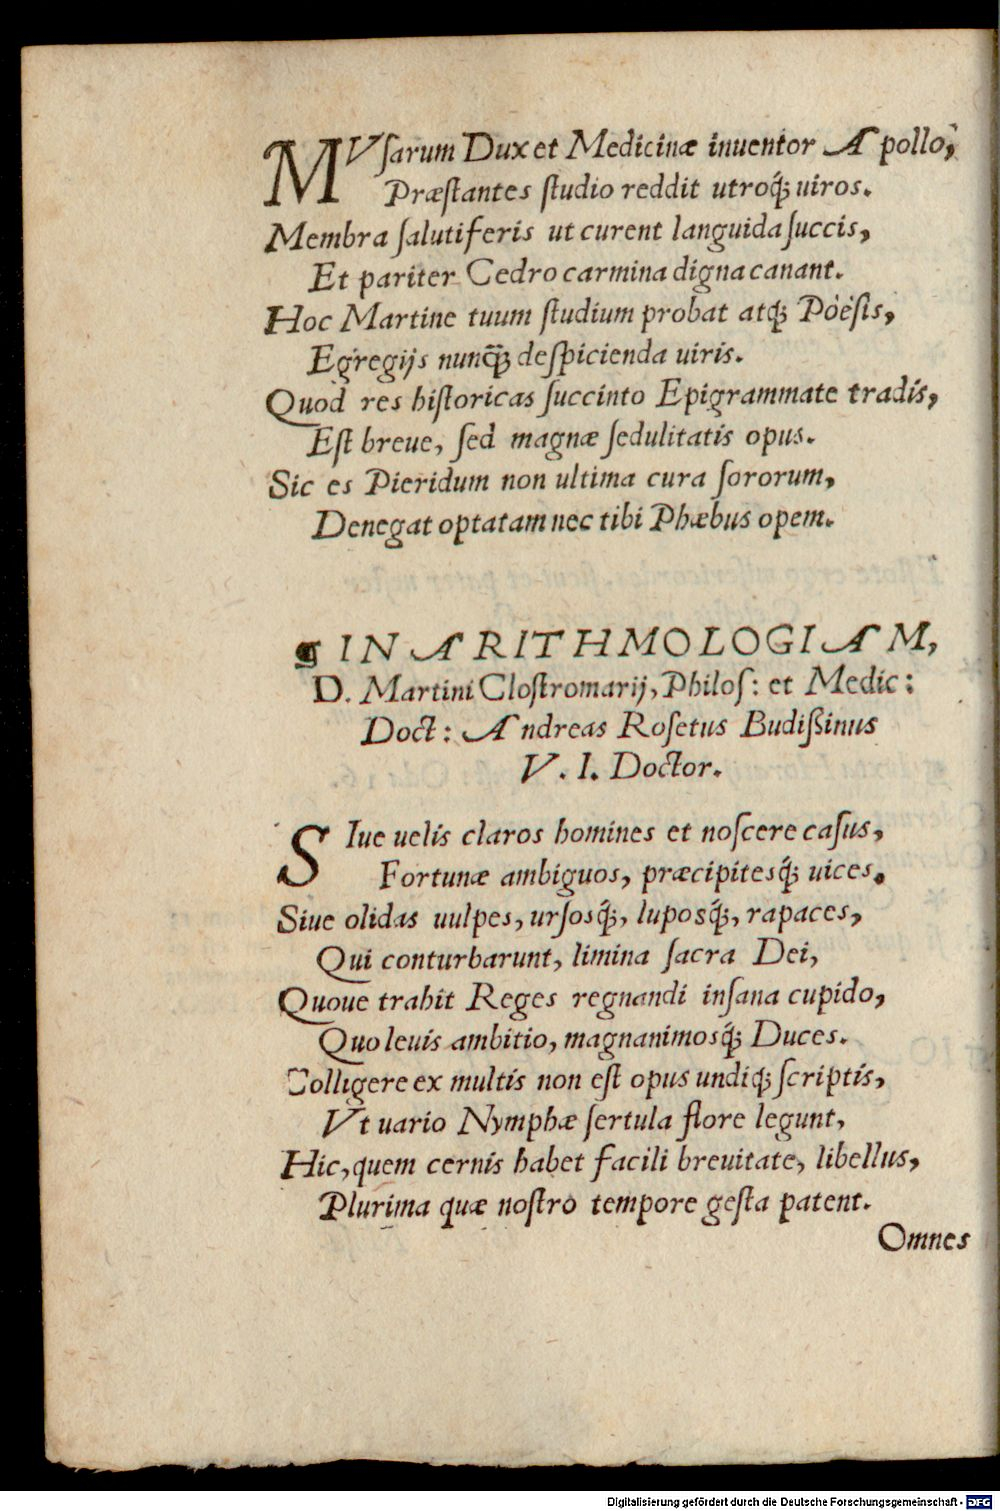 MVſarum Dux et Medicinæ inuentor Apollo,
Præſtantes ſtudio reddit utroq́; uiros.
Membra ſalutiferis ut curent languida ſuccis,
Et pariter Cedro carmina digna canant.
Hoc Martine tuum ſtudium probat atq́; Poëſis,
Egregijs nunq̃; deſpicienda uiris.
Quod res hiſtoricas ſuccinto Epigrammate tradis,
Eſt breue, ſed magnæ ſedulitatis opus.
Sic es Pieridum non ultima cura ſororum,
Denegat optatam nec tibi Phæbus opem.
¶ IN ARITHMOLOGIAM,
D. Martini Cloſtromarij, Philoſ: et Medic:
Doct: Andreas Roſetus Budiſsinus
V. I. Doctor.
SIue uelis claros homines et noſcere caſus,
Fortunæ ambiguos, præcipitesq́; uices.
Siue olidas uulpes, urſosq́;, luposq́;, rapaces,
Qui conturbarunt, limina ſacra Dei,
Quoue trahit Reges regnandi inſana cupido,
Quo leuis ambitio, magnanimosq́; Duces.
Colligere ex multis non eſt opus undiq́; ſcriptis,
Vt uario Nymphæ ſertula flore legunt,
Hic, quem cernis habet facili breuitate, libellus,
Plurima quæ noſtro tempore geſta patent.
Omnes
Digitalisierung gefördert durch die Deutsche Forschungsgemeinschaft - DFG